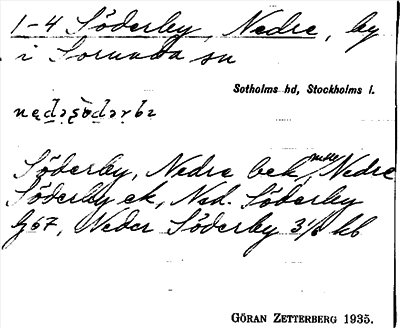 1-4 Söderby, Nedre, by
i Sorunda sn
Sotholms hd, Stockholms l.
Söderby, Nedre bek, Nedre
Söderby ek, Ned. Söderby
G67, Neder Söderby 3½ kb
GÖRAN ZETTERBERG 1935.